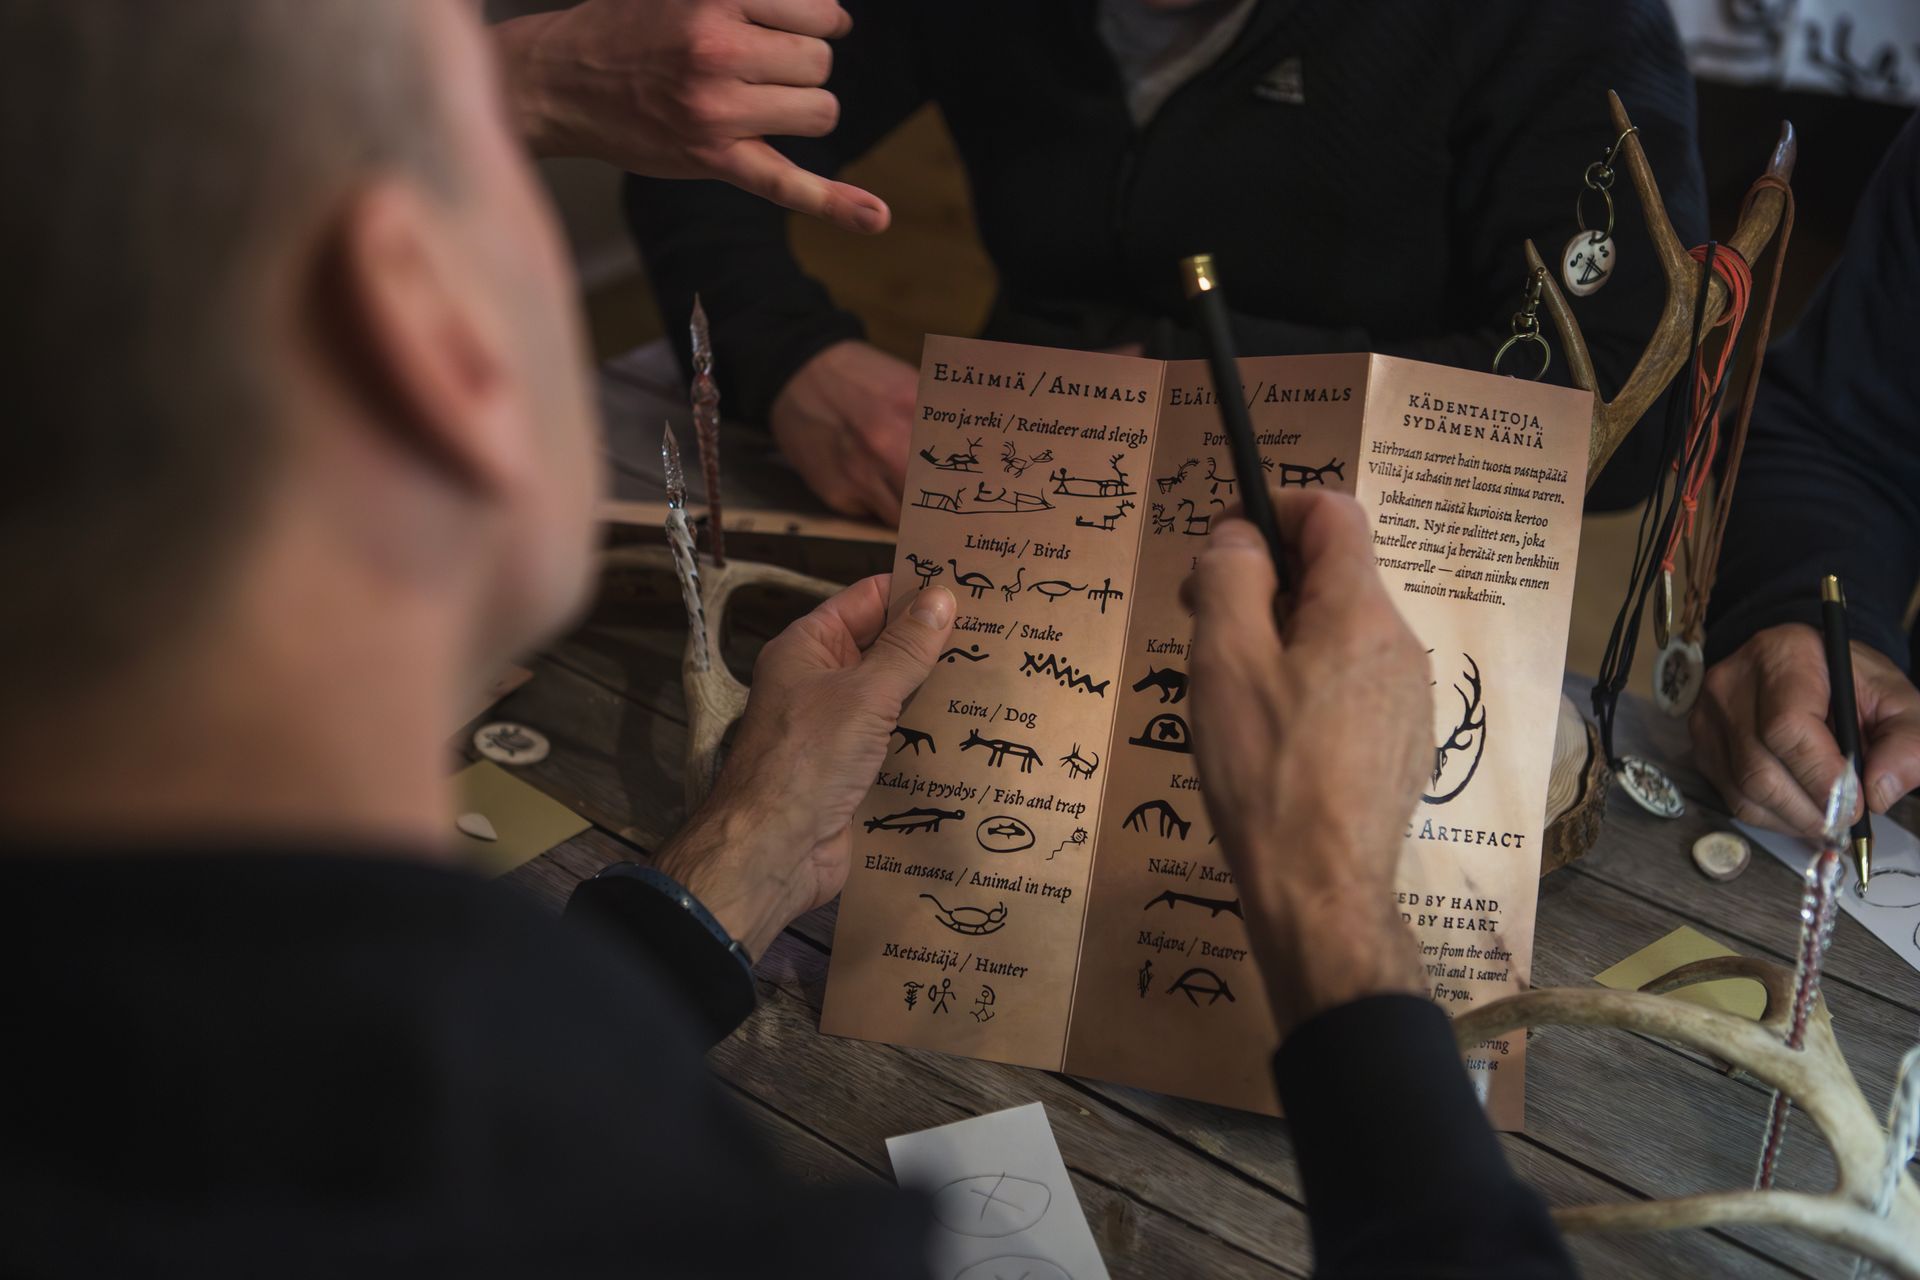 ELÄIMIÄ / ANIMALS
Poro ja reki / Reindeer and sleigh
Lintuja / Birds
Käärme / Snake
Koira / Dog
Kala ja pyydys / Fish and trap
Eläin ansassa / Animal in trap
Metsästäjä / Hunter
/ ANIMALS
Näätä /
Majava / Beaver
KÄDENTAITOJA,
SYDÄMEN ÄÄNIÄ
Hirhvaan sarvet hain tuosta vastapäätä
Vililtä ja sahasin net laossa sinua varen.
Jokkainen näistä kuvioista kertoo
tarinan. Nyt sie valittet sen, joka
sinua ja herätät sen henkhiin
— aivan niinku ennen
muinoin ruukathiin.
ARTEFACT
BY HAND,
BY HEART
from the other
Vili and I sawed
for you.
just as